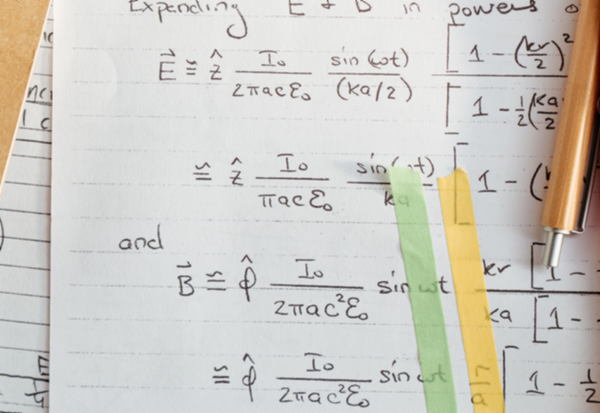 Expanding E & B in powers
E⃗ ≅ ẑ I₀/(2πacε₀) sin(ωt)/(ka/2) [1 - (kr/2)²]/[1 - ½(ka/2)
≅ ẑ I₀/(πacε₀) sin(ωt)/ka [1 - (
and
B⃗ ≅ φ̂ I₀/(2πac²ε₀) sin ωt kr[1 -]/ka[1 -]
≅ φ̂ I₀/(2πac²ε₀) sin ωt [1 - ½